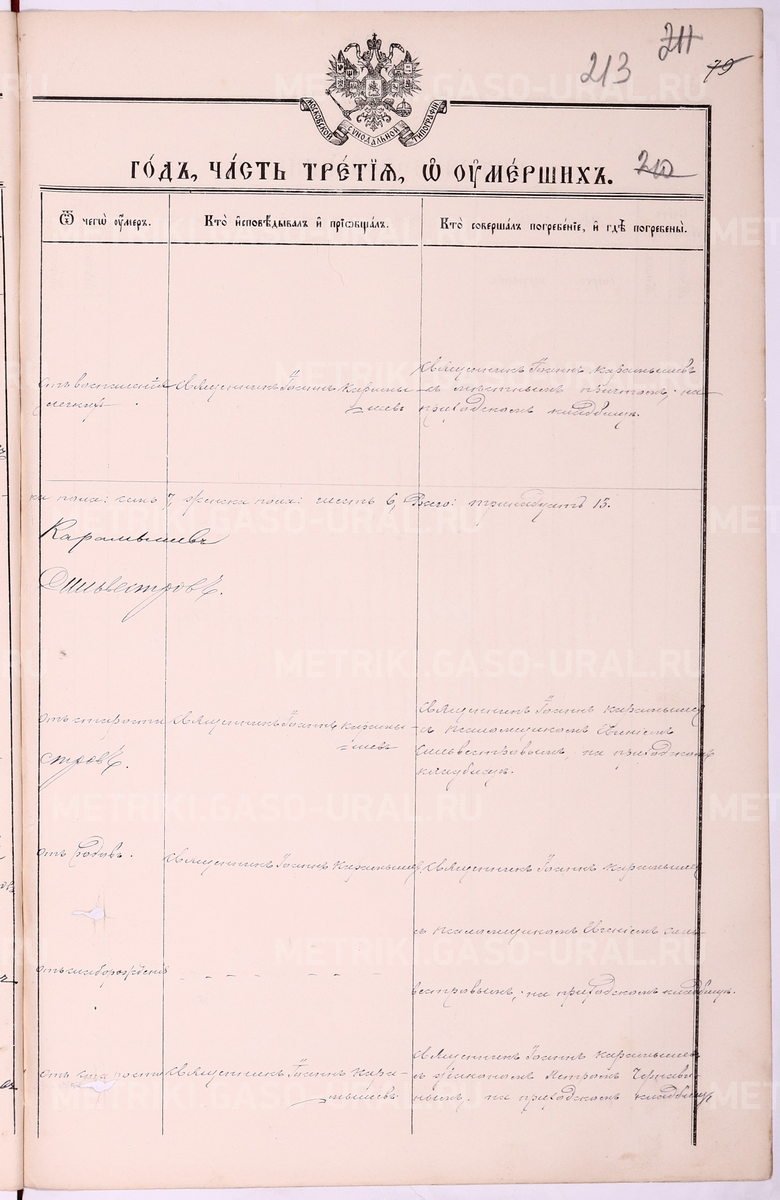 211
213
79
МОСКОВСКОЙ СѴНОДАЛЬНОЙ ТИПОГРАФІИ
ГОДЪ, ЧАСТЬ ТРЕТІЯ, Ѡ ОУМЕРШИХЪ.
210
Ѿ чегѡ оумеръ.
Кто исповѣдывалъ и приѡбщалъ.
Кто совершалъ погребеніе, и гдѣ погребены.
отъ воспаленія
легкихъ
Священникъ Іоаннъ Карамы-
шевъ
Священникъ Іоаннъ Карамышевъ
съ мѣстнымъ причтомъ, на
приходскомъ кладбищѣ.
ка пола: семь 7, женска пола: шесть 6, Всего: тринадцать 13.
Карамышевъ
Сильвестровъ.
отъ старости
Священникъ Іоаннъ Карамы-
шевъ
Священникъ Іоаннъ Карамышев
съ псаломщикомъ Евгеніемъ
Сильвестровымъ, на приходскомъ
кладбищѣ.
стровъ.
отъ родовъ.
Священникъ Іоаннъ Карамышев
Священникъ Іоаннъ Карамышев
съ псаломщикомъ Евгеніемъ Силь-
отъ слаборожденія
вестровымъ, на приходскомъ кладбищѣ.
отъ старости
Священникъ Іоаннъ Кара-
мышевъ
Священникъ Іоаннъ Карамышев
съ діакономъ Петромъ
нымъ, на приходскомъ кладбищѣ
METRIKI.GASO-URAL.RU